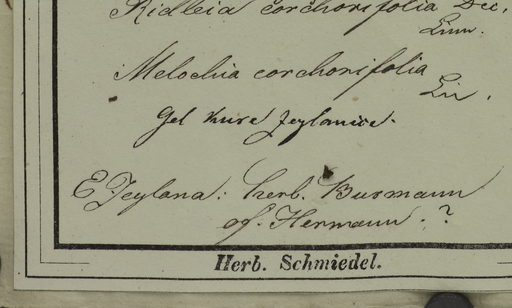 Ridleia corchorifolia Dec.
Linn.
Melochia corchorifolia
Ln.
Gel kure zeylanice.
E Zeylana: herb. Burmann
of. Hermann. ?
Herb. Schmiedel.